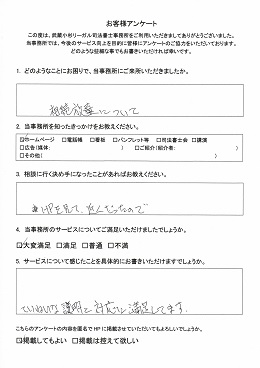 お客様アンケート
この度は、武蔵小杉リーガル司法書士事務所をご利用いただきましてありがとうございました。
当事務所では、今後のサービス向上を目的に皆様にアンケートのご協力をいただいております。
どのような些細な事でもお書きいただければ幸いです。
1. どのようなことにお困りで、当事務所にご来所いただきましたか。
相続放棄について
2. 当事務所を知ったきっかけをお教えください。
☑ホームページ □電話帳 □看板 □パンフレット等 □司法書士会 □講演
□広告(媒体: ) □ご紹介(紹介者: )
□その他( )
3. 相談に行く決め手になったことがあればお教えください。
HPを見て、近くだったので
4. 当事務所のサービスについてご満足いただけましたでしょうか。
☑大変満足 □満足 □普通 □不満
5. サービスについて感じたことを具体的にお書きいただけますでしょうか。
ていねいな説明と対応に満足してます。
こちらのアンケートの内容を匿名でHPに掲載させていただいてもよろしいでしょうか。
☑掲載してもよい □掲載は控えて欲しい